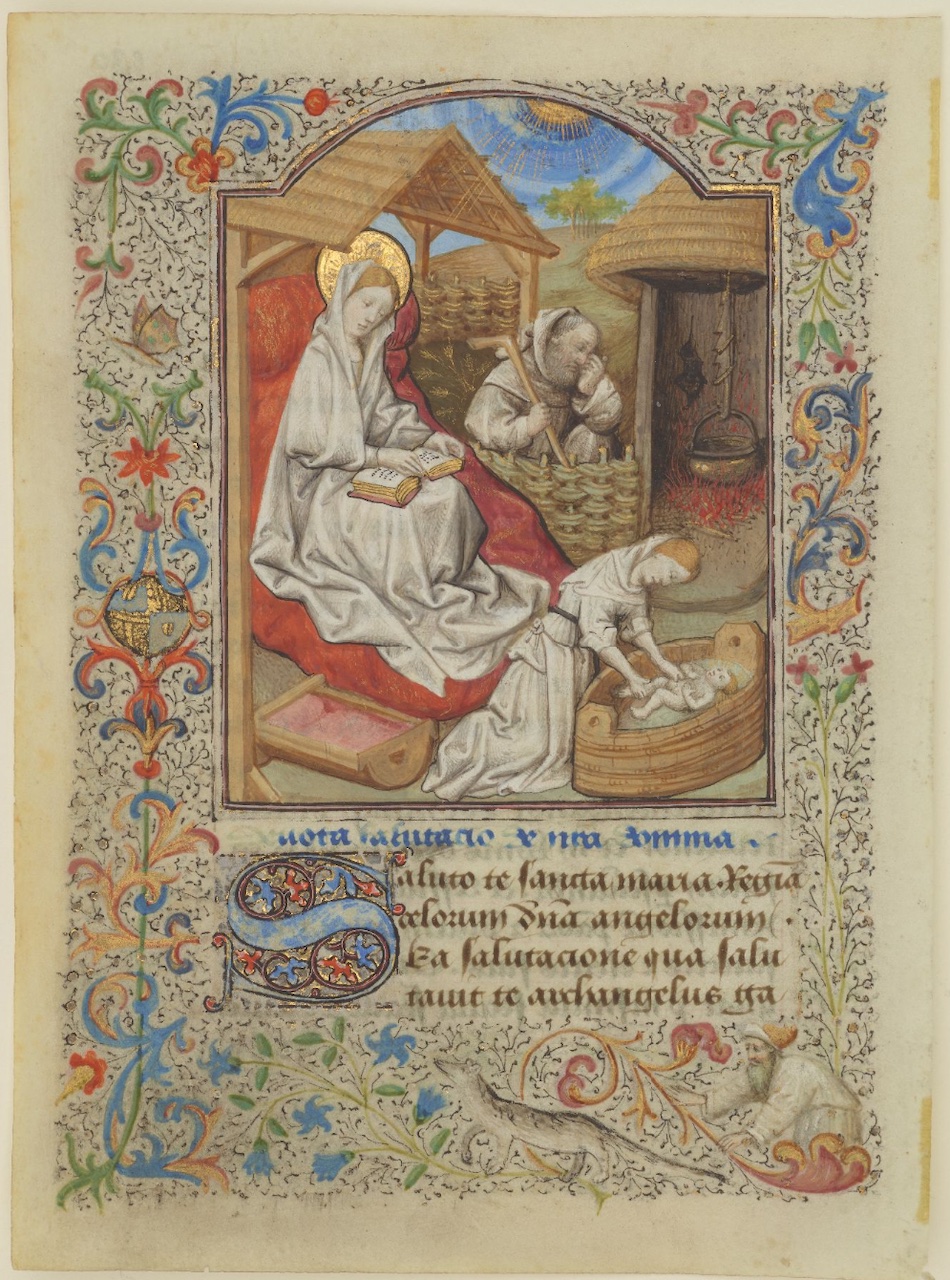 Devota salutacio ex nra domina.
Saluto te sancta maria. Regīa
celorum dn̄a angelorum.
Ea salutacione qua salu
tauit te archangelus ga